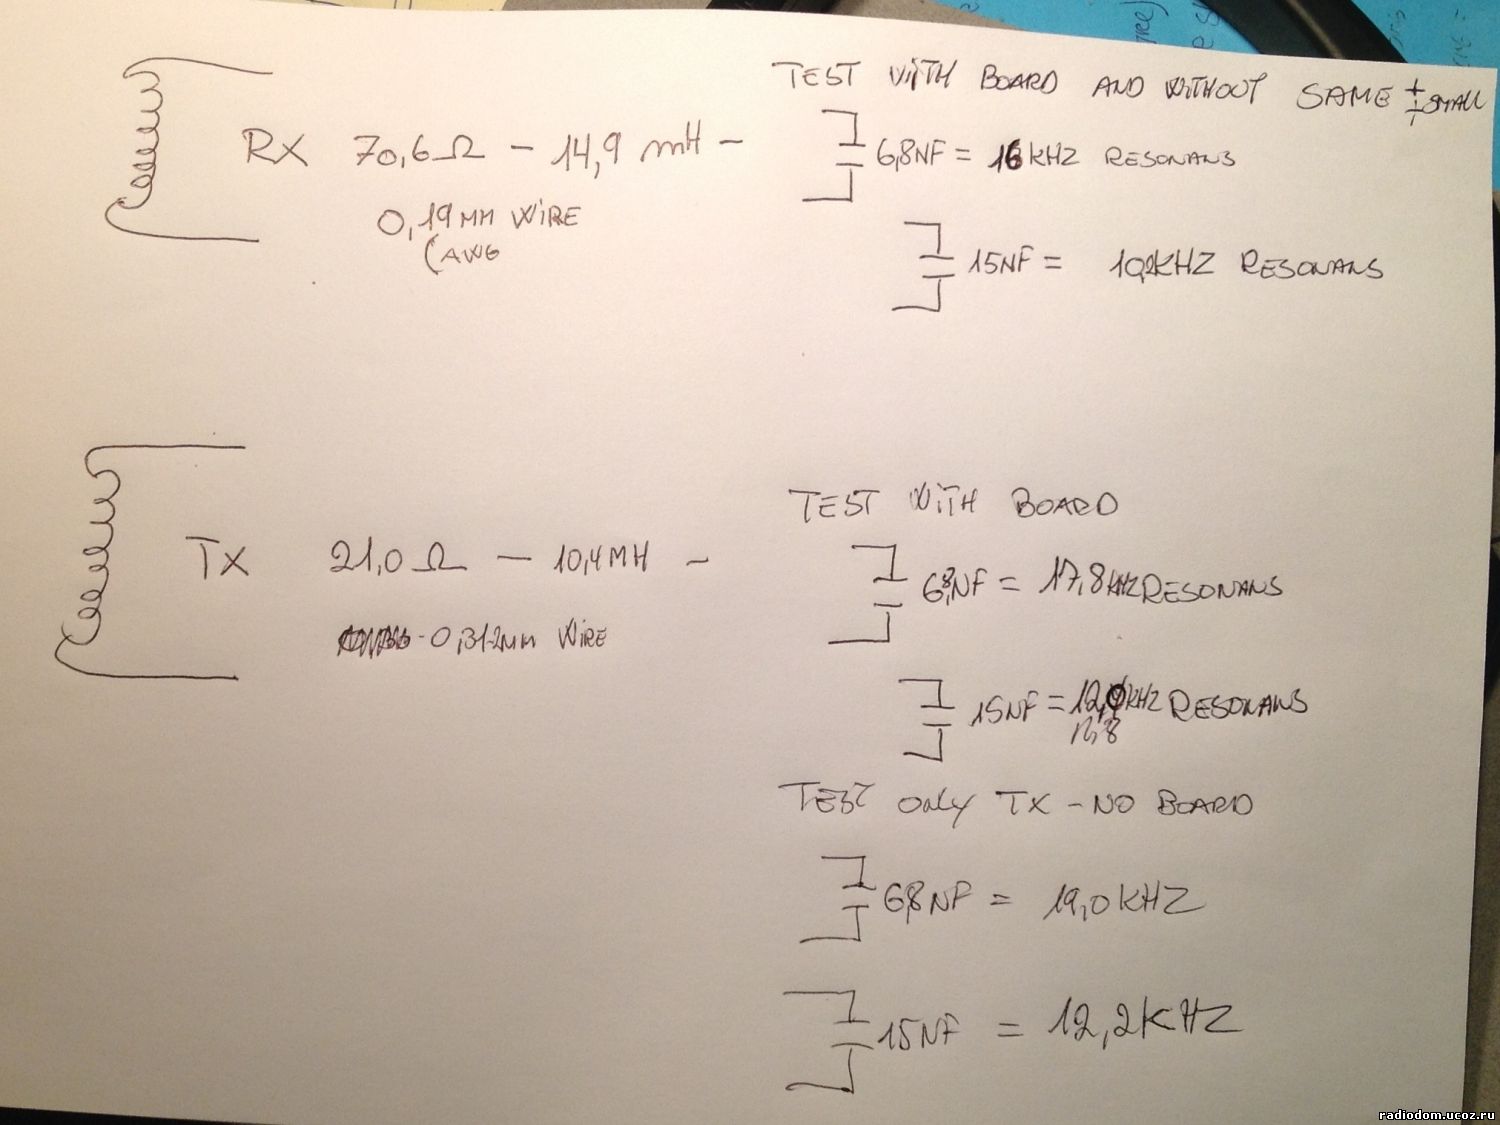 TEST WITH BOARD AND WITHOUT SAME ± SMALL
RX 70,6Ω – 14,9 mH –
6,8NF = 16KHZ RESONANS
0,19MM WIRE
(AWG
15NF = 10,2KHZ RESONANS
TEST WITH BOARD
TX 21,0Ω – 10,4MH –
6,8NF = 17,8KHZ RESONANS
0,312MM WIRE
15NF = 12,0KHZ RESONANS
TEST ONLY TX – NO BOARD
6,8NF = 19,0KHZ
15NF = 12,2KHZ
radiodom.ucoz.ru